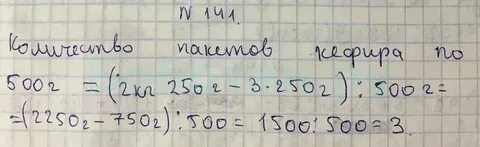 N 141.
Количество пакетов кефира по
500г = (2кг 250г - 3·250г) : 500г =
= (2250г - 750г) : 500 = 1500 : 500 = 3.